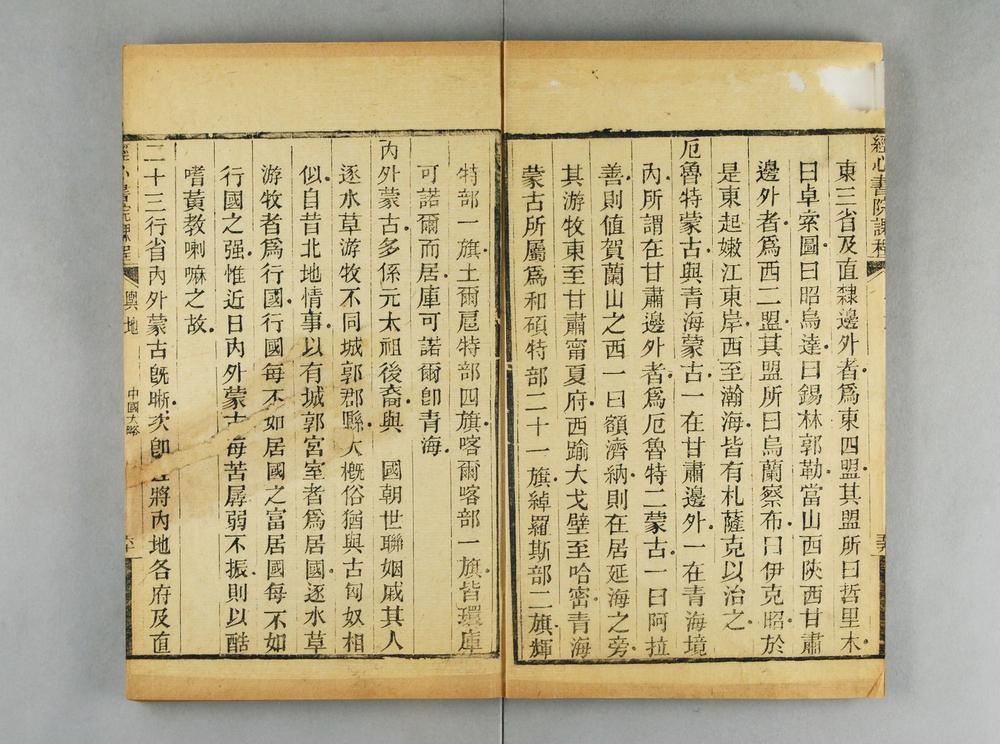 經心書院課程
東三省及直隸邊外者爲東四盟其盟所曰哲里木
曰卓索圖曰昭烏達曰錫林郭勒當山西陝西甘肅
邊外者爲西二盟其盟所曰烏蘭察布曰伊克昭於
是東起嫩江東岸西至瀚海皆有札薩克以治之
厄魯特蒙古與青海蒙古一在甘肅邊外一在青海境
內所謂在甘肅邊外者爲厄魯特二蒙古一曰阿拉
善則值賀蘭山之西一曰額濟納則在居延海之旁
其游牧東至甘肅甯夏府西踰大戈壁至哈密青海
蒙古所屬爲和碩特部二十一旗綽羅斯部二旗輝
特部一旗土爾扈特部四旗喀爾喀部一旗皆環庫
可諾爾而居庫可諾爾卽青海
內外蒙古多係元太祖後裔與 國朝世聯姻戚其人
逐水草游牧不同城郭郡縣大槪俗猶與古匈奴相
似自昔北地情事以有城郭宮室者爲居國逐水草
游牧者爲行國行國每不如居國之富居國每不如
行國之强惟近日內外蒙古每苦孱弱不振則以酷
嗜黃教喇嘛之故
二十三行省內外蒙古旣晰次卽 將內地各府及直
經心書院課程
輿地
中國大略